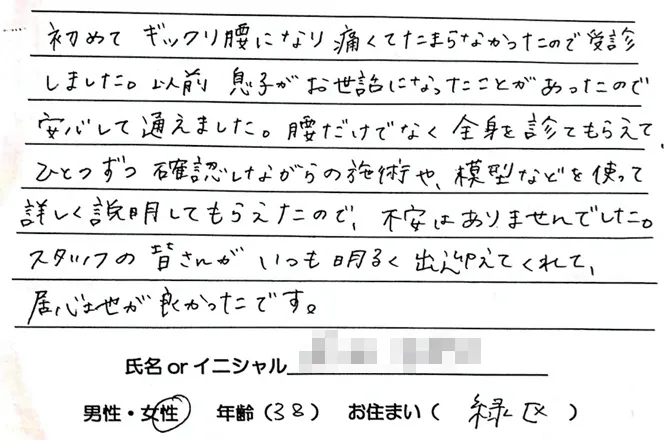 初めて ギックリ腰になり 痛くてたまらなかったので 受診
しました。以前 息子が お世話になったことがあったので
安心して 通えました。腰だけでなく 全身を 診てもらえて、
ひとつずつ 確認しながらの 施術や、模型などを 使って
詳しく 説明してもらえたので、不安は ありませんでした。
スタッフの 皆さんが いつも 明るく 出迎えてくれて、
居心地が 良かったです。
氏名 or イニシャル
男性・女性 年齢(38) お住まい( 緑区 )